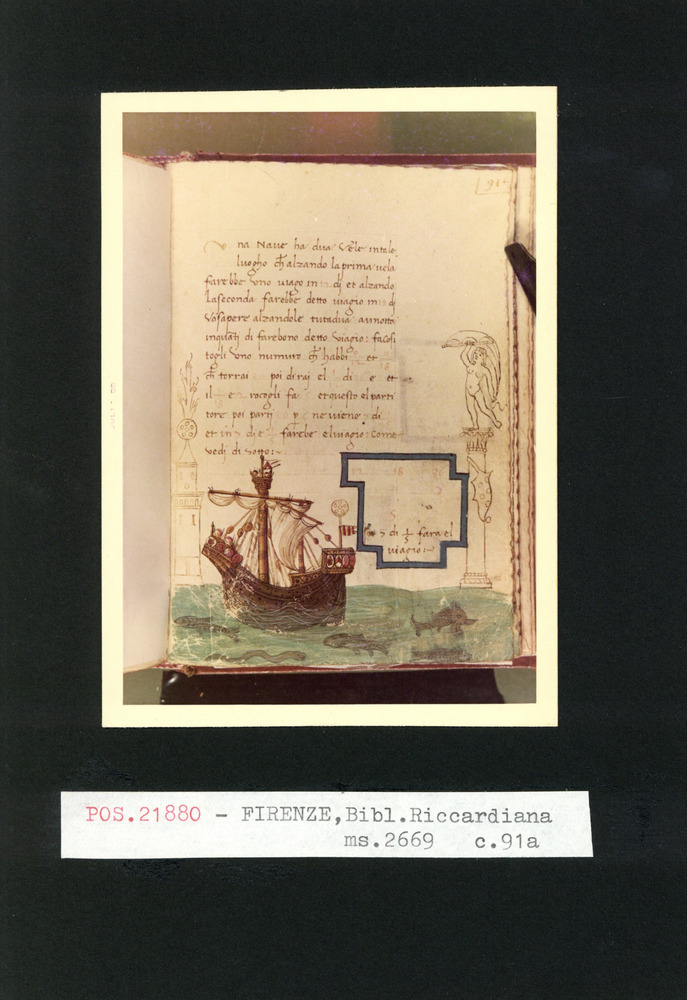 91
na Naue ha dua Vele in tale
luogho ch alzando la prima uela
farebbe vno uiago in di et alzando
la seconda farebbe detto uiagio in di
Vo sapere alzandole tutadua aunotta
inquati di farebono detto viagio: fa cosi
togli vno numuro ch habbi et
ch torrai poi di raj el di e et
il e rocogli fa et questo el parti
tore poi parti p ne uieno di
et in di e farebe el uiagio Come
vedi di sotto:~
di 1/5 fara el
uiagio:~
POS.21880 - FIRENZE,Bibl.Riccardiana
ms.2669 c.91a